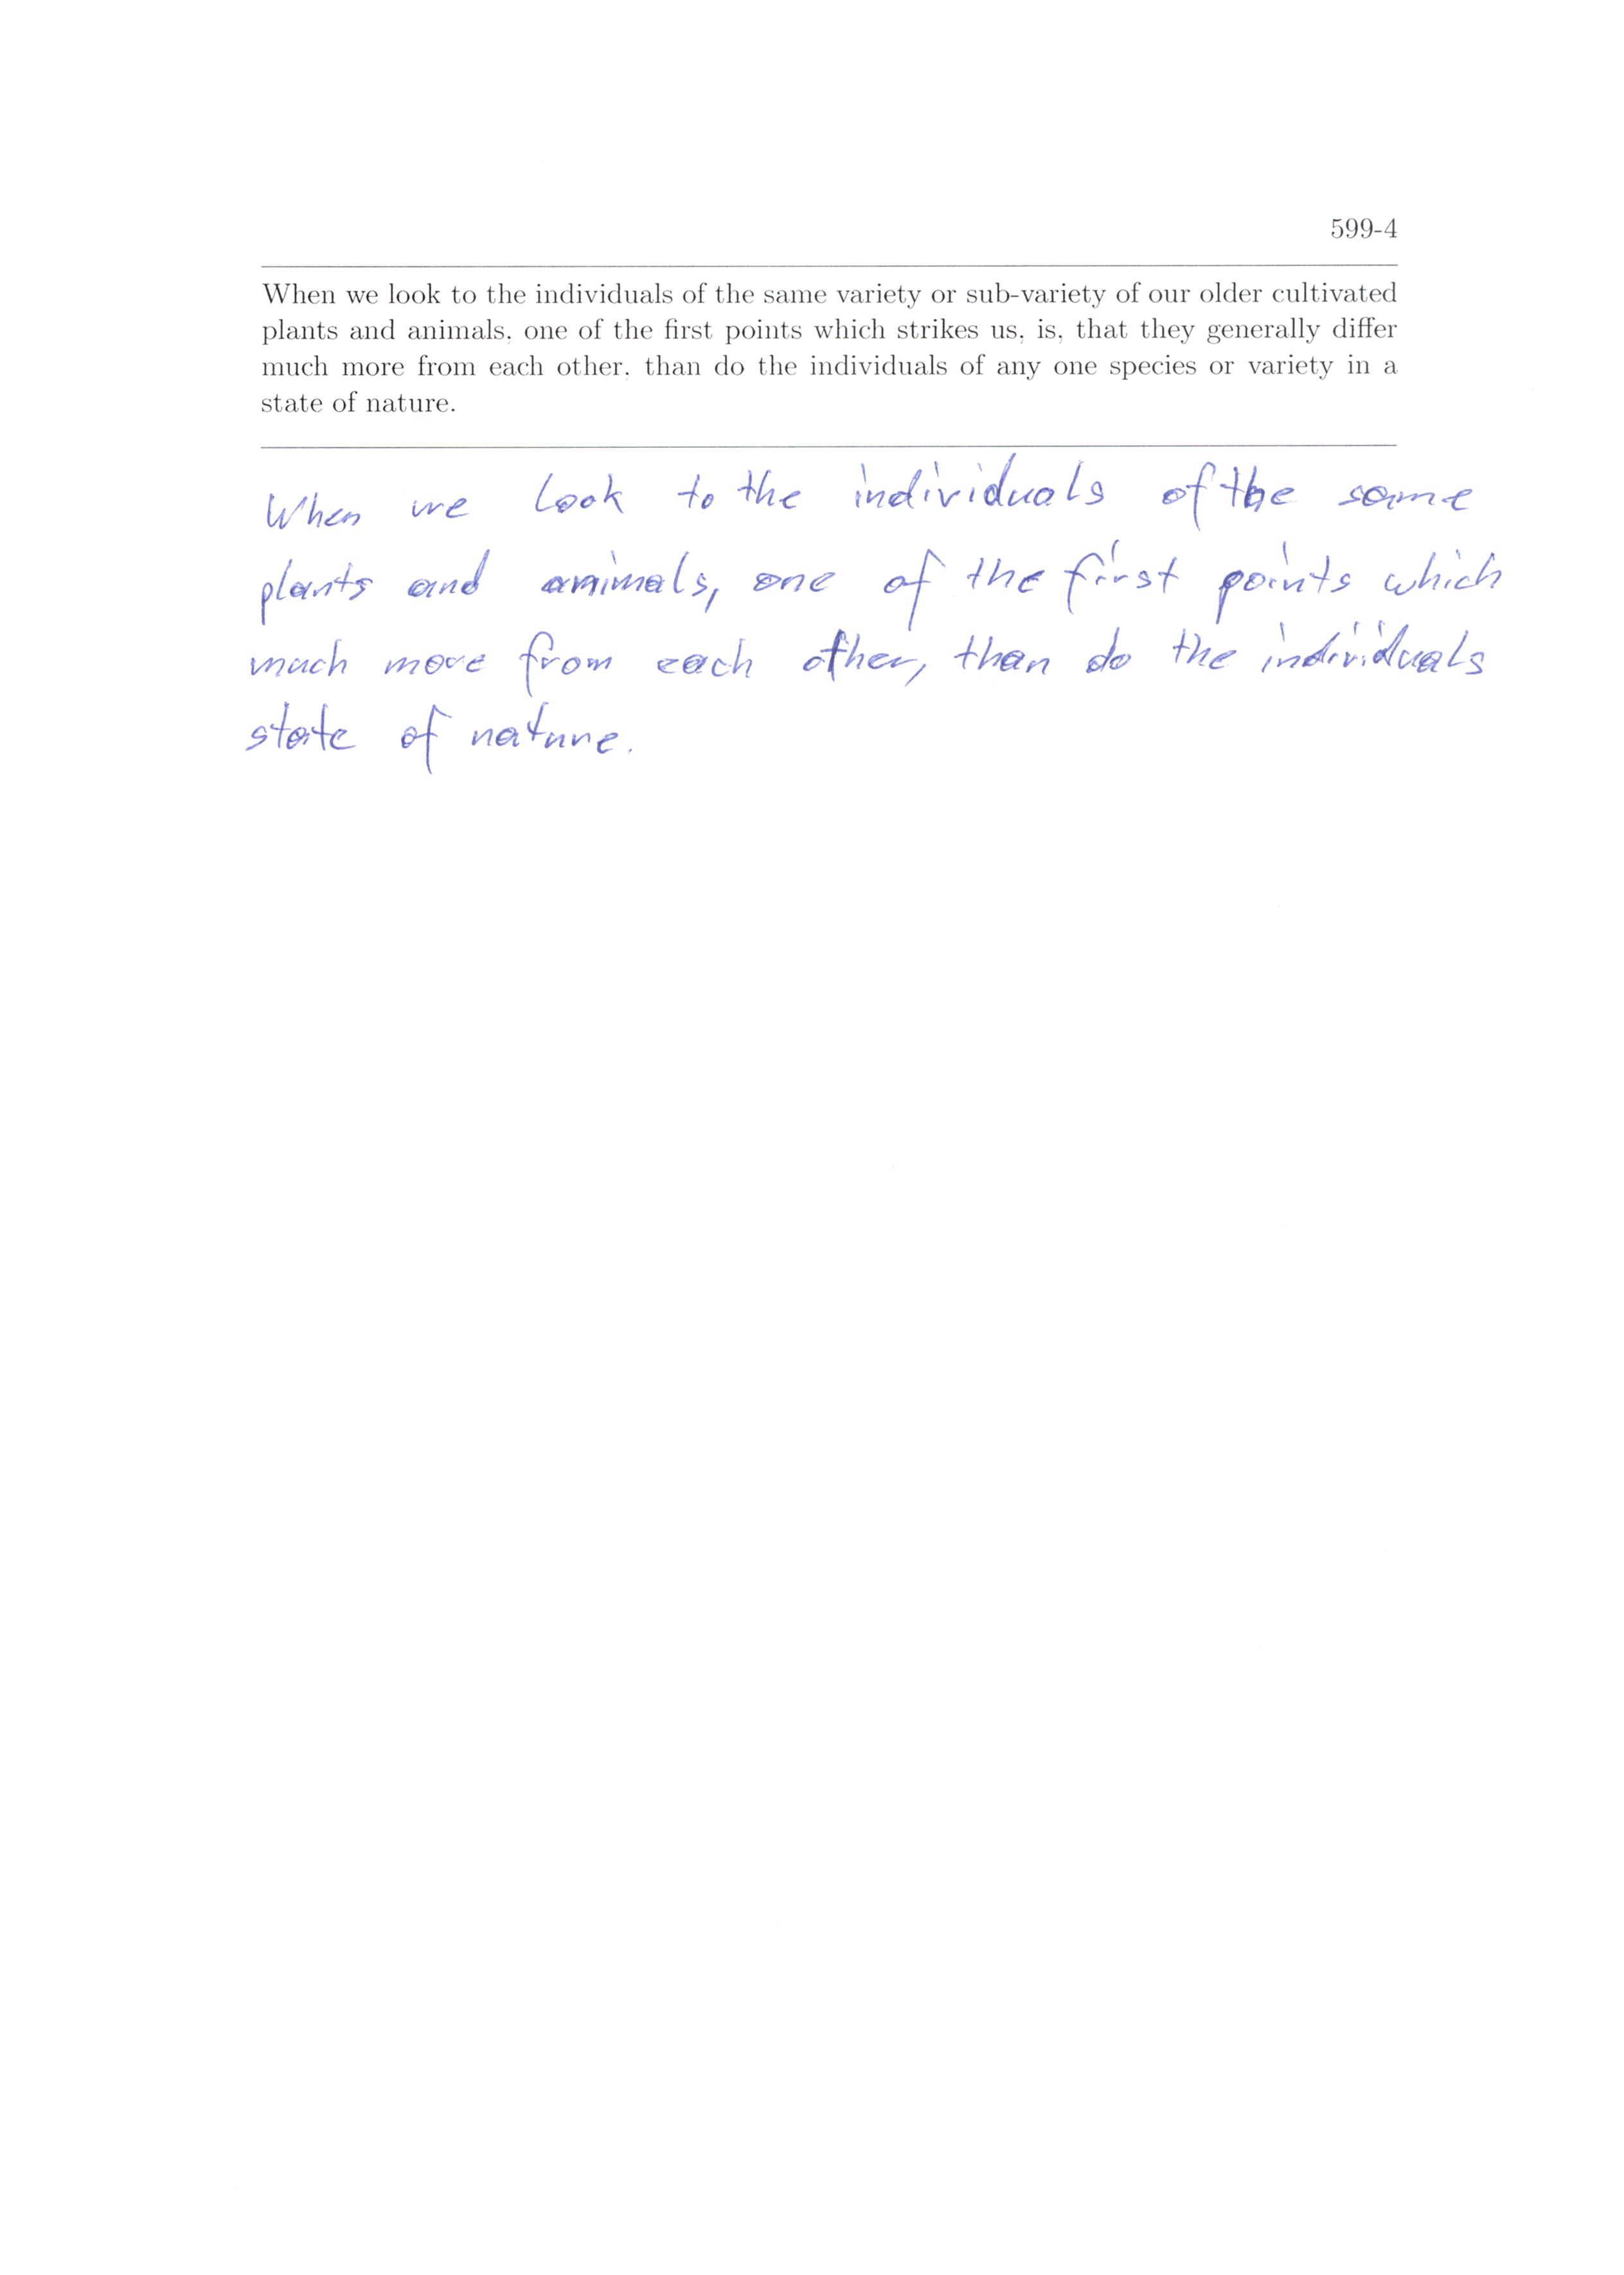 599-4
When we look to the individuals of the same variety or sub-variety of our older cultivated
plants and animals, one of the first points which strikes us, is, that they generally differ
much more from each other, than do the individuals of any one species or variety in a
state of nature.
When we look to the individuals of the same
plants and animals, one of the first points which
much more from each other, than do the individuals
state of nature.